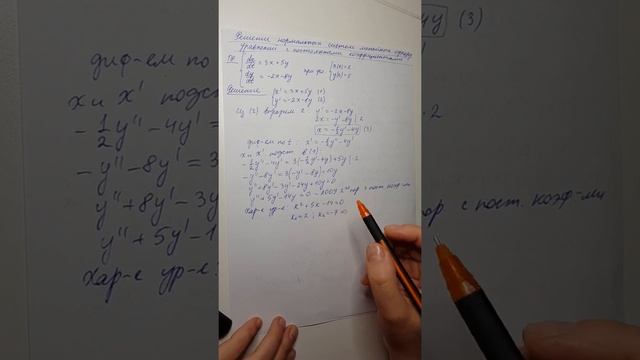 Решение нормальных систем линейных однородн
уравнений с постоянными коэффициентами
dx/dt = 3x+5y
dy/dt = -2x-8y при
Решение
x' = 3x+5y (1)
y' = -2x-8y (2)
Из (2) выразим x: y' = -2x-8y
2x = -y'-8y |:2
x = -1/2y'-4y (3)
диф-ем по t: x' = -1/2y''-4y'
x и x' подст в (1)
-1/2y''-4y' = 3(-1/2y'-4y)+5y |·2
-y''-8y' = 3(-y'-8y)+10y
y''+8y'-3y'-24y+10y=0
y''+5y'-14y=0 - ЛОДУ 2го пор. с пост. коэф-ми
Хар-е ур-е: k²+5k-14=0
k₁=2; k₂=-7
диф-ем по
x и x' подст
-1/2y''-4y'
-y''-8y'=
y''+8y'-3
y''+5y'-1
Хар-е ур-е:
-4y (3)
·2
пор. с пост. коэф-ми